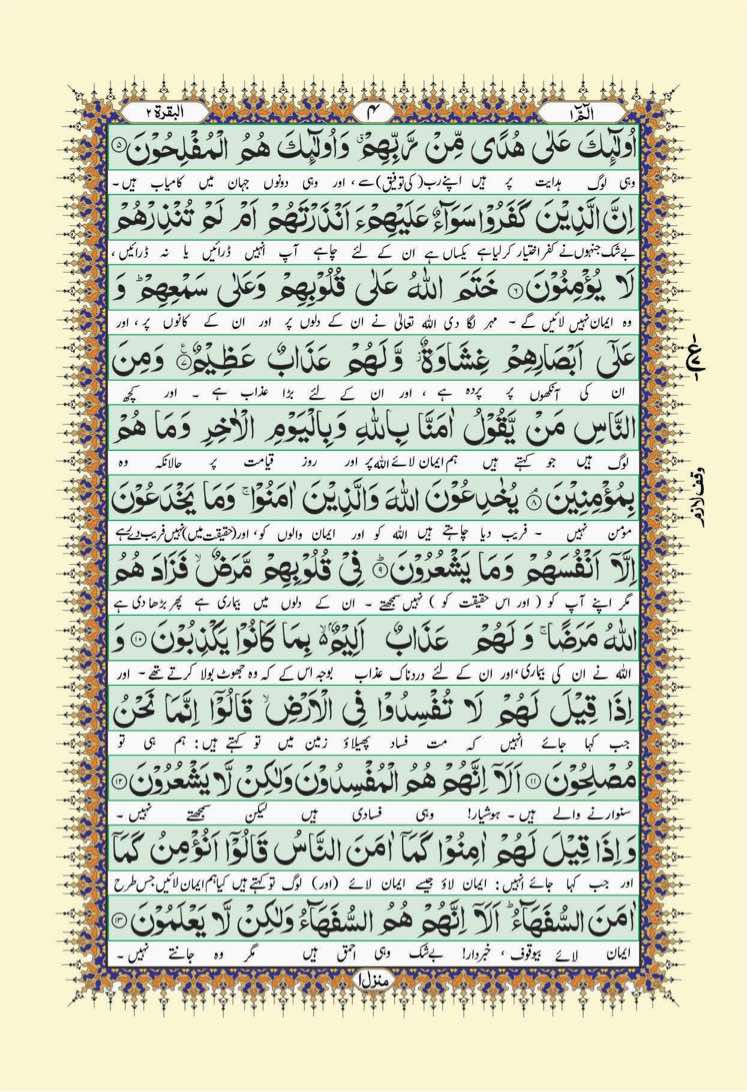 الٓمّٓ ١
۴
البقرة ٢
اُولٰٓئِكَ عَلٰى هُدًى مِّنْ رَّبِّهِمْ ۗ وَاُولٰٓئِكَ هُمُ الْمُفْلِحُوْنَ ۝٥
وہی لوگ ہدایت پر ہیں اپنے رب (کی توفیق) سے ، اور وہی دونوں جہان میں کامیاب ہیں ۔
اِنَّ الَّذِيْنَ كَفَرُوْا سَوَآءٌ عَلَيْهِمْ ءَاَنْذَرْتَهُمْ اَمْ لَمْ تُنْذِرْهُمْ
بےشک جنہوں نے کفر اختیار کرلیا ہے یکساں ہے ان کے لئے چاہے آپ انہیں ڈرائیں یا نہ ڈرائیں ،
لَا يُؤْمِنُوْنَ ۝٦ خَتَمَ اللّٰهُ عَلٰى قُلُوْبِهِمْ وَعَلٰى سَمْعِهِمْ ؕ وَ
وہ ایمان نہیں لائیں گے ۔ مہر لگا دی اللہ تعالیٰ نے ان کے دلوں پر اور ان کے کانوں پر ، اور
عَلٰٓى اَبْصَارِهِمْ غِشَاوَةٌ ۫ وَّلَهُمْ عَذَابٌ عَظِيْمٌ ۝٧ ع وَمِنَ
ان کی آنکھوں پر پردہ ہے ، اور ان کے لئے بڑا عذاب ہے ۔ اور کچھ
النَّاسِ مَنْ يَّقُوْلُ اٰمَنَّا بِاللّٰهِ وَبِالْيَوْمِ الْاٰخِرِ وَمَا هُمْ
لوگ ہیں جو کہتے ہیں ہم ایمان لائے اللہ پر اور روز قیامت پر حالانکہ وہ
بِمُؤْمِنِيْنَ ۝٨ۘ يُخٰدِعُوْنَ اللّٰهَ وَالَّذِيْنَ اٰمَنُوْا ۚ وَمَا يَخْدَعُوْنَ
مومن نہیں ۔ فریب دیا چاہتے ہیں اللہ کو اور ایمان والوں کو ، اور (حقیقت میں) نہیں فریب دے رہے
اِلَّآ اَنْفُسَهُمْ وَمَا يَشْعُرُوْنَ ۝٩ؕ فِيْ قُلُوْبِهِمْ مَّرَضٌ ۙ فَزَادَهُمُ
مگر اپنے آپ کو ( اور اس حقیقت کو ) نہیں سمجھتے ۔ ان کے دلوں میں بیماری ہے پھر بڑھا دی ہے
اللّٰهُ مَرَضًا ۚ وَلَهُمْ عَذَابٌ اَلِيْمٌۢ ۙ بِمَا كَانُوْا يَكْذِبُوْنَ ۝١٠ وَ
اللہ نے ان کی بیماری ، اور ان کے لئے دردناک عذاب بوجہ اس کے کہ وہ جھوٹ بولا کرتے تھے ۔ اور
اِذَا قِيْلَ لَهُمْ لَا تُفْسِدُوْا فِي الْاَرْضِ ۙ قَالُوْٓا اِنَّمَا نَحْنُ
جب کہا جائے انہیں کہ مت فساد پھیلاؤ زمین میں تو کہتے ہیں : ہم ہی تو
مُصْلِحُوْنَ ۝١١ اَلَآ اِنَّهُمْ هُمُ الْمُفْسِدُوْنَ وَلٰكِنْ لَّا يَشْعُرُوْنَ ۝١٢
سنوارنے والے ہیں ۔ ہوشیار! وہی فسادی ہیں لیکن سمجھتے نہیں ۔
وَاِذَا قِيْلَ لَهُمْ اٰمِنُوْا كَمَآ اٰمَنَ النَّاسُ قَالُوْٓا اَنُؤْمِنُ كَمَآ
اور جب کہا جائے انہیں : ایمان لاؤ جیسے ایمان لائے (اور) لوگ تو کہتے ہیں کیا ہم ایمان لائیں جس طرح
اٰمَنَ السُّفَهَآءُ ؕ اَلَآ اِنَّهُمْ هُمُ السُّفَهَآءُ وَلٰكِنْ لَّا يَعْلَمُوْنَ ۝١٣
ایمان لائے بیوقوف ، خبردار! بےشک وہی احمق ہیں مگر وہ جانتے نہیں ۔
منزل ١
وقف لازم